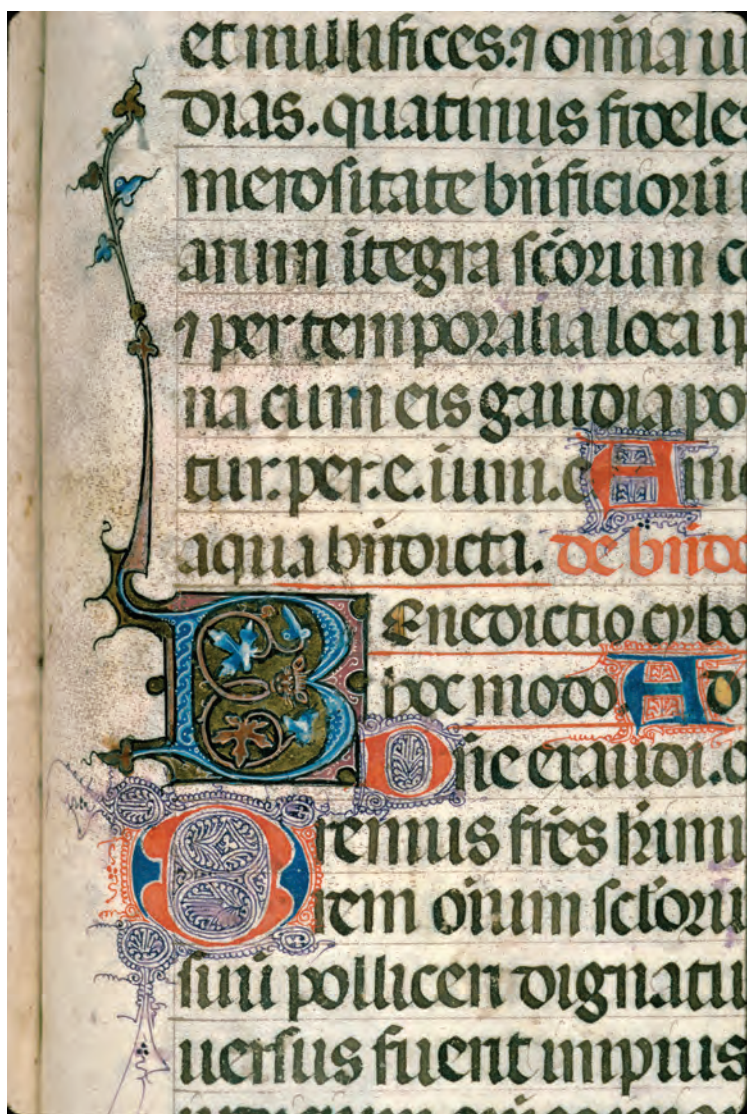 et mulltifices.⁊ om̄ia ui
dias.quatinus fidele
merositate bn̄ficiorū
arum ītegra sc̄orum c
⁊ per temporalia loca ip
na cum eis gaudia po
tur.per.e.ium.e Am
aqua bn̄dicta. de bn̄d
Benedictio cybo
hoc modo. Ad
O sic exaudi.o
Oremus frēs kīmi
tem om̄ium sct̄oru
suū polliceri dignatu
uersus fuerit impius